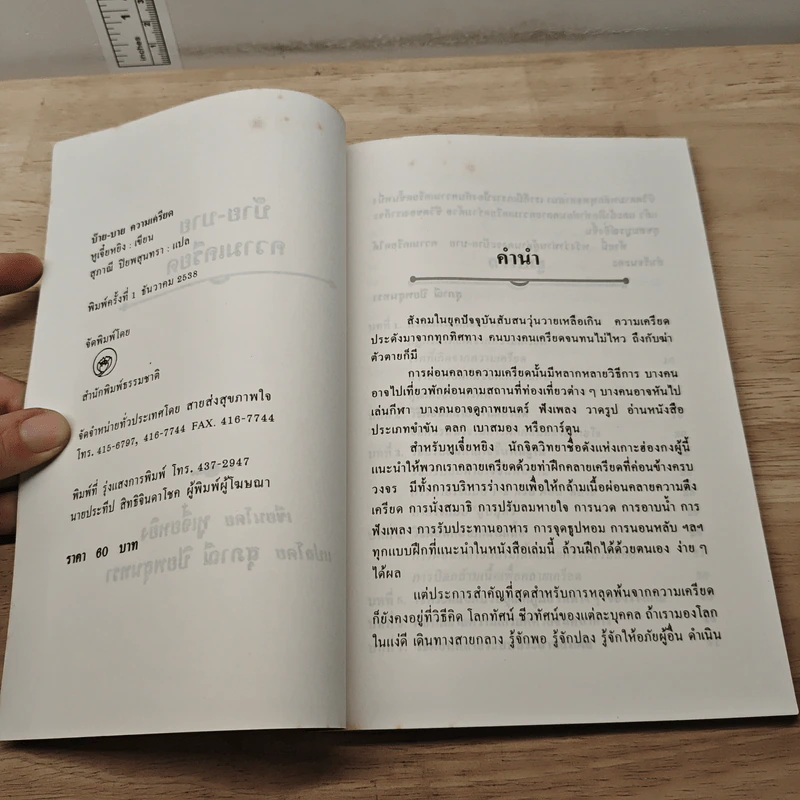 บ๊าย-บาย ความเครียด
ทูเจี๋ยหยิง : เขียน
สุภาณี ปิยพสุนทรา : แปล
พิมพ์ครั้งที่ 1 ธันวาคม 2538
จัดพิมพ์โดย
สำนักพิมพ์ธรรมชาติ
จัดจำหน่ายทั่วประเทศโดย สายส่งสุขภาพใจ
โทร. 415-6797, 416-7744 FAX. 416-7744
พิมพ์ที่ รุ่งแสงการพิมพ์ โทร. 437-2947
นายประทีป สิทธิจินดาโชค ผู้พิมพ์ผู้โฆษณา
ราคา 60 บาท
คำนำ
สังคมในยุคปัจจุบันสับสนวุ่นวายเหลือเกิน ความเครียด
ประดังมาจากทุกทิศทาง คนบางคนเครียดจนทนไม่ไหว ถึงกับฆ่า
ตัวตายก็มี
การผ่อนคลายความเครียดนั้นมีหลากหลายวิธีการ บางคน
อาจไปเที่ยวพักผ่อนตามสถานที่ท่องเที่ยวต่าง ๆ บางคนอาจหันไป
เล่นกีฬา บางคนอาจดูภาพยนตร์ ฟังเพลง วาดรูป อ่านหนังสือ
ประเภทขำขัน ตลก เบาสมอง หรือการ์ตูน
สำหรับทูเจี๋ยหยิง นักจิตวิทยาชื่อดังแห่งเกาะฮ่องกงผู้นี้
แนะนำให้พวกเราคลายเครียดด้วยท่าฝึกคลายเครียดที่ค่อนข้างครบ
วงจร มีทั้งการบริหารร่างกายเพื่อให้กล้ามเนื้อผ่อนคลายความตึง
เครียด การนั่งสมาธิ การปรับลมหายใจ การนวด การอาบน้ำ การ
ฟังเพลง การรับประทานอาหาร การจุดธูปหอม การนอนหลับ ฯลฯ
ทุกแบบฝึกที่แนะนำในหนังสือเล่มนี้ ล้วนฝึกได้ด้วยตนเอง ง่าย ๆ
ได้ผล
แต่ประการสำคัญที่สุดสำหรับการหลุดพ้นจากความเครียด
ก็ยังคงอยู่ที่วิธีคิด โลกทัศน์ ชีวทัศน์ของแต่ละบุคคล ถ้าเรามองโลก
ในแง่ดี เดินทางสายกลาง รู้จักพอ รู้จักปลง รู้จักให้อภัยผู้อื่น ดำเนิน
inches
1
2